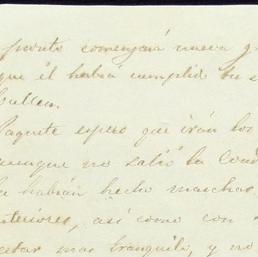 pronto comenzará nueva
que él habia cumplido su
Paquete espero que irán los
aunque no salió la
la habian hecho marchar
anteriores, así como con
estar mas tranquilo, y no